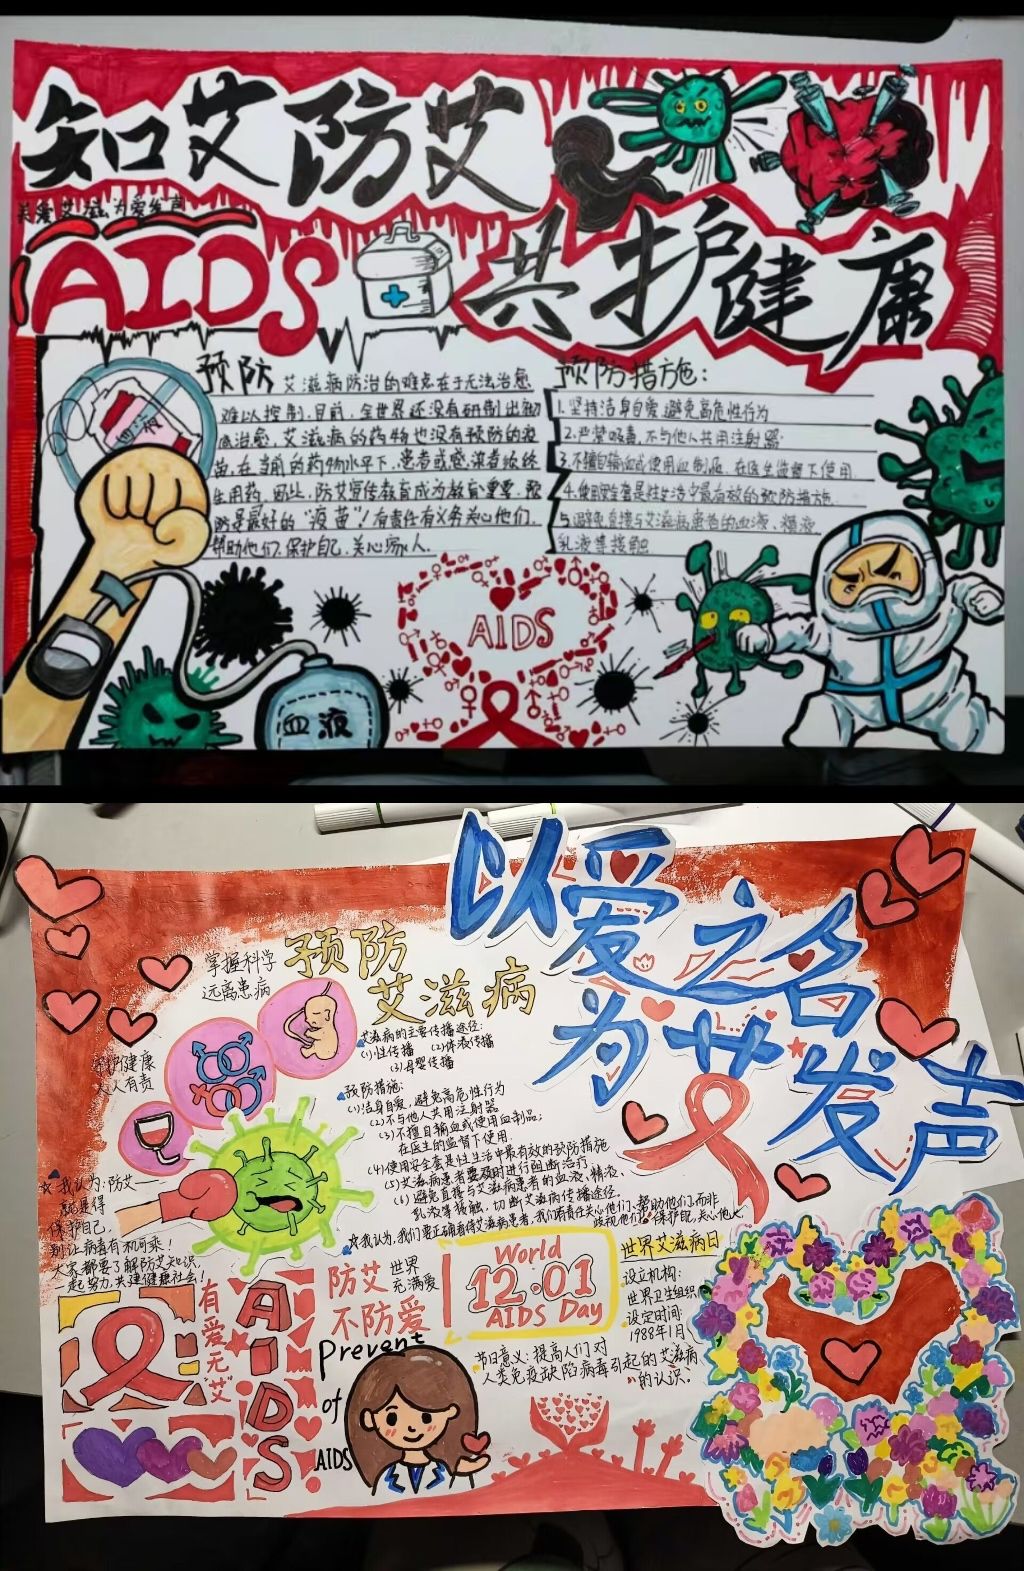 知艾防艾
关爱艾滋 为爱发声
AIDS
共护健康
预防 艾滋病防治的难点在于无法治愈
难以控制,目前,全世界还没有研制出彻
底治愈,艾滋病的药物也没有预防的疫
苗,在当前的药物水平下,患者或感染者须终
生用药,因此,防艾宣传教育成为教育重要,预
防是最好的“疫苗”!有责任有义务关心他们,
帮助他们,保护自己,关心家人.
预防措施:
1.坚持洁身自爱,避免高危性行为
2.严禁吸毒,不与他人共用注射器;
3.不擅自输血或使用血制品,在医生监督下使用.
4.使用安全套是性生活中最有效的预防措施.
5.避免直接与艾滋病患者的血液、精液
乳液等接触
AIDS
血液
以爱之名
为艾发声
掌握科学
远离患病
预防
艾滋病
守护健康
人人有责
艾滋病的主要传播途径:
(1)性传播 (2)体液传播
(3)母婴传播
预防措施:
(1)洁身自爱,避免高危性行为
(2)不与他人共用注射器
(3)不擅自输血或使用血制品;
在医生的监督下使用.
(4)使用安全套是性生活中最有效的预防措施
(5)艾滋病患者要及时进行阻断治疗
(6)避免直接与艾滋病患者的血液、精液、
乳液等接触,切断艾滋病传播途径.
我认为,我们要正确看待艾滋病患者,我们有责任关心他们、帮助他们,而非
歧视他们,保护自己,关心他人
我认为:防艾一
就是得
保护自己,
别让病毒有机可乘!
大家都要了解防艾知识,
一起努力,共建健康社会!
有爱无“艾”
AIDS
防艾 世界
充满爱
不防爱
World
12.01
AIDS Day
世界艾滋病日
设立机构:
世界卫生组织
设定时间:
1988年1月
节日意义:提高人们对
人类免疫缺陷病毒引起的艾滋病
的认识.
Prevent
of
AIDS